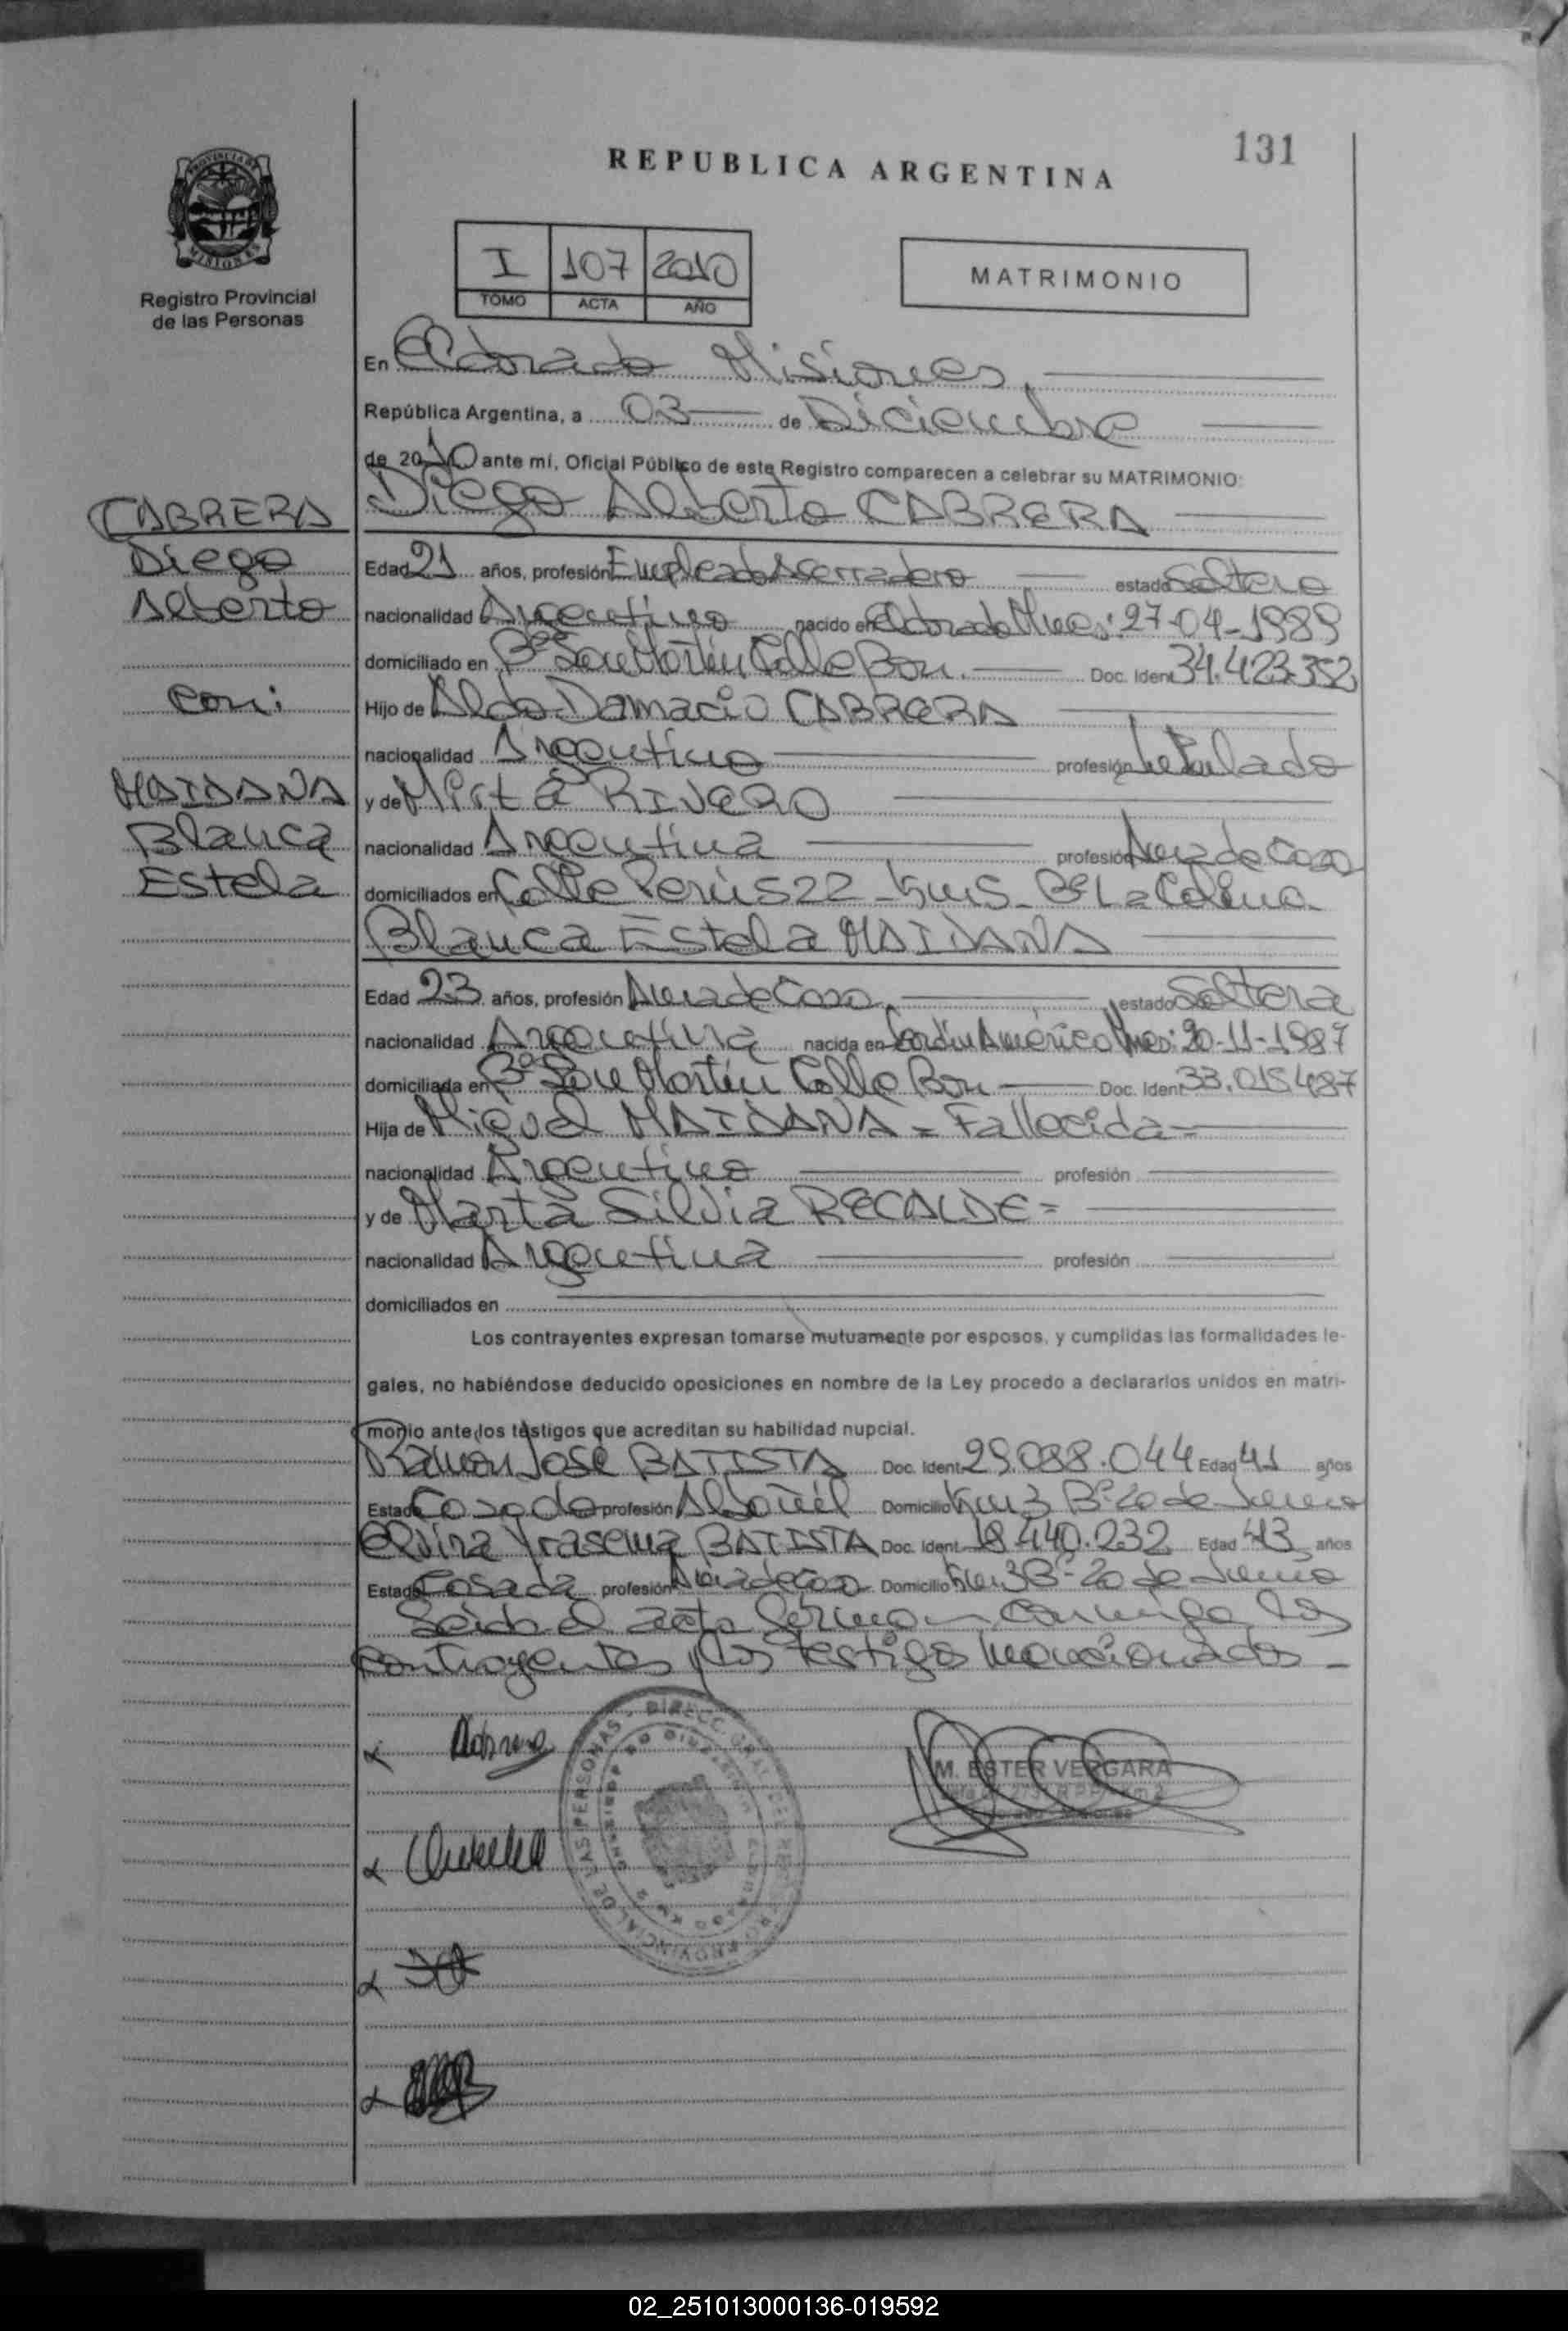 131
REPUBLICA ARGENTINA
PROVINCIA DE
MISIONES
Registro Provincial
de las Personas
I 107 2010
TOMO ACTA AÑO
MATRIMONIO
En Eldorado Misiones,
República Argentina, a 03 de Diciembre
de 2010 ante mí, Oficial Público de este Registro comparecen a celebrar su MATRIMONIO:
CABRERA
Diego
Alberto
con:
MAIDANA
Blanca
Estela
Diego Alberto CABRERA
Edad 21 años, profesión Empleado Aserradero estado Soltero
nacionalidad Argentino nacido en Eldorado Mnes: 27-04-1989
domiciliado en Bº San Martín Calle Bon. Doc. Ident 34.423.352
Hijo de Aldo Damacio CABRERA
nacionalidad Argentino profesión Jubilado
y de Mirta RIVERO
nacionalidad Argentina profesión Ama de Casa
domiciliados en Calle Perú 522 - Km 5 - Bº La Colina
Blanca Estela MAIDANA
Edad 23 años, profesión Ama de Casa, estado Soltera
nacionalidad Argentina nacida en Jardín América Mnes: 20-11-1987
domiciliada en Bº San Martín Calle Bon Doc. Ident 33.015.487
Hija de Miguel MAIDANA = Fallecida =
nacionalidad Argentino profesión
y de Marta Silvia RECALDE =
nacionalidad Argentina profesión
domiciliados en
Los contrayentes expresan tomarse mutuamente por esposos, y cumplidas las formalidades le-
gales, no habiéndose deducido oposiciones en nombre de la Ley procedo a declararlos unidos en matri-
monio ante los testigos que acreditan su habilidad nupcial.
Ramon José BATISTA Doc. Ident 29.088.044 Edad 41 años
Estado Casado profesión Albañil Domicilio Km 3 Bº 20 de Junio
Elvira Yrasema BATISTA Doc. Ident 18.440.232 Edad 43 años
Estado Casada profesión Ama de Casa Domicilio Km 3 Bº 20 de Junio
Leída el acta firman conmigo los
contrayentes y los testigos mencionados -
M. ESTER VERGARA
02_251013000136-019592